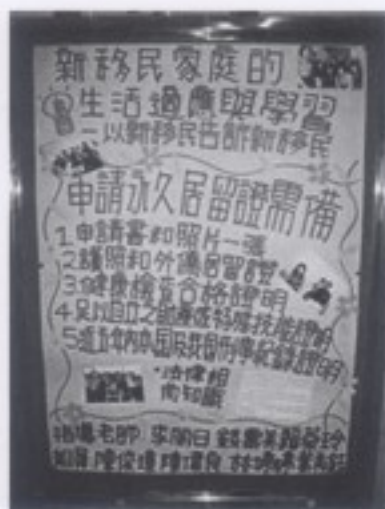 新移民家庭的
生活適應與學習
－以新移民告訴新移民
申請永久居留證需備
1.申請書和照片一張
2.護照和外僑居留證
3.健康檢查合格證明
4.足以自立之財產或特殊技能證明
5.近五年內本國及我國刑事紀錄證明
法律相
關知識
指導老師 李開日
組員 陳俊